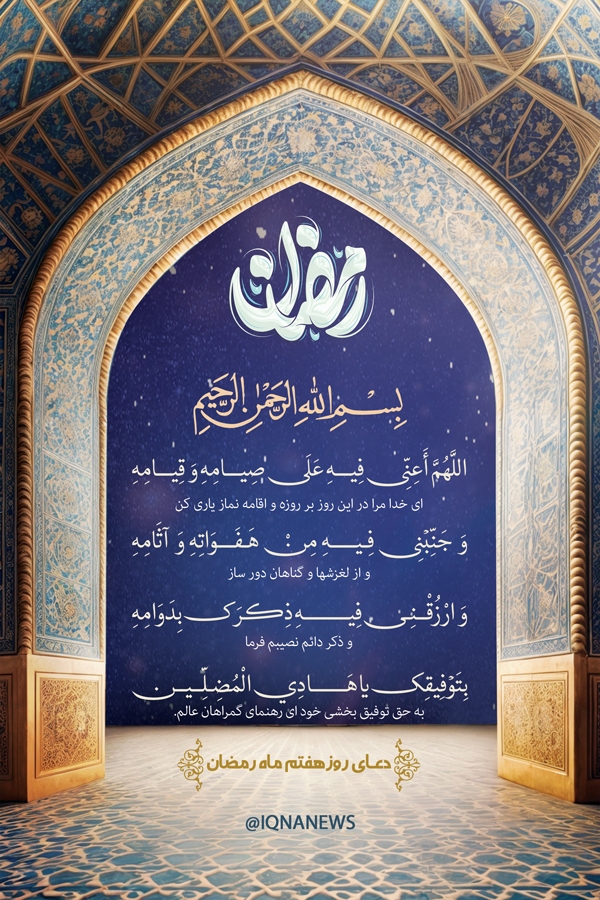 رمضان
بِسْمِ اللهِ الرَّحْمٰنِ الرَّحِیمِ
اللهُمَّ أَعِنّی فِیهِ عَلَی صِیامِهِ وَ قِیامِهِ
ای خدا مرا در این روز بر روزه و اقامه نماز یاری کن
وَ جَنِّبْنِی فِیهِ مِنْ هَفَوَاتِهِ وَ آثَامِهِ
و از لغزشها و گناهان دور ساز
وَ ارْزُقْنِی فِیهِ ذِکرَک بِدَوَامِهِ
و ذکر دائم نصیبم فرما
بِتَوْفِیقِک یا هَادِی الْمُضِلِّینَ
به حق توفیق بخشی خود ای رهنمای گمراهان عالم.
دعای روز هفتم ماه رمضان
@IQNANEWS